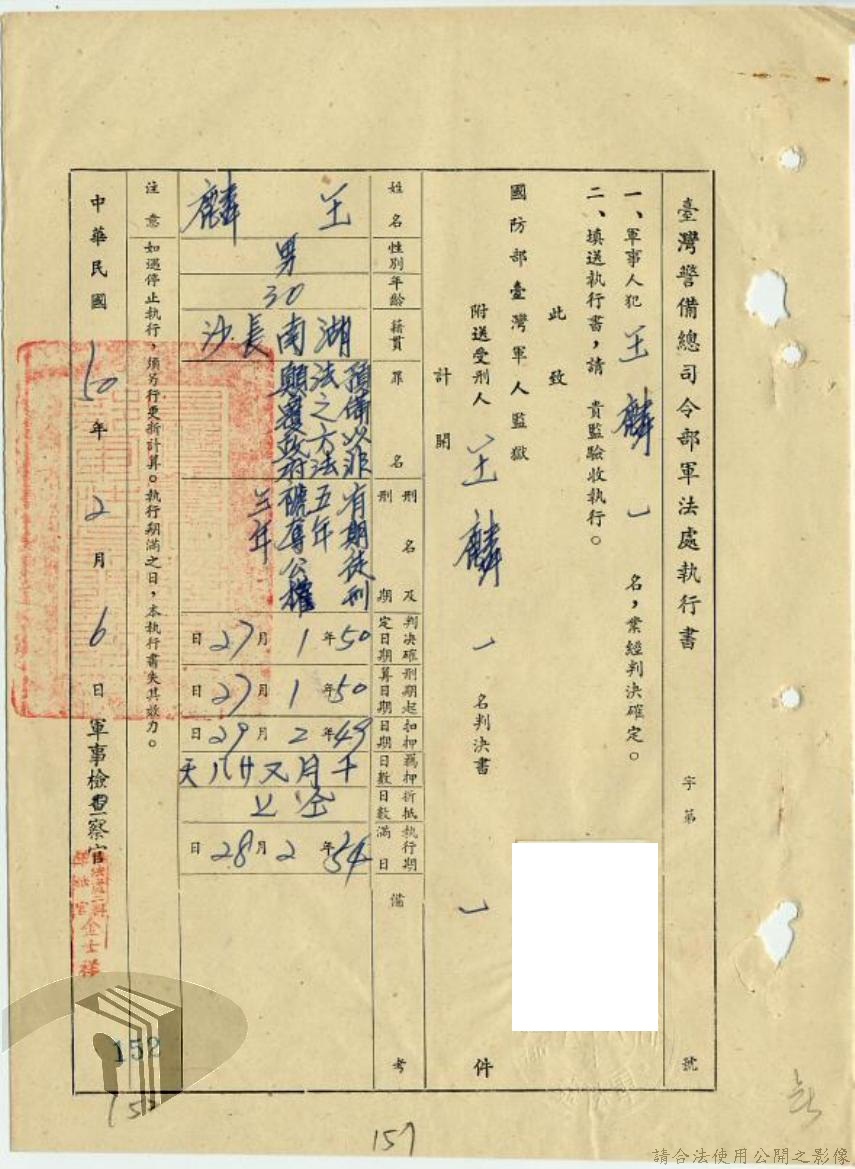 臺灣警備總司令部軍法處執行書
字第
號
一、軍事人犯 王麟 一 名，業經判決確定。
二、填送執行書，請 貴監驗收執行。
此致
國防部臺灣軍人監獄
附送受刑人 王麟 一 名判決書 一 件
計開
姓名
性別
年齡
籍貫
罪名
刑名及刑期
判決確定日期
刑期起算日期
扣押日期
羈押日數
折抵日數
執行期滿日
備考
王麟
男
30
湖南長沙
預備以非法之方法顛覆政府
有期徒刑五年褫奪公權三年
50年1月27日
50年1月27日
49年2月29日
十月又廿八天
仝上
54年2月28日
注意 如遇停止執行，須另行更新計算。執行期滿之日，本執行書失其效力。
中華民國 50 年 2 月 6 日 軍事檢察官
金士祥
152
152
157
請合法使用公開之影像